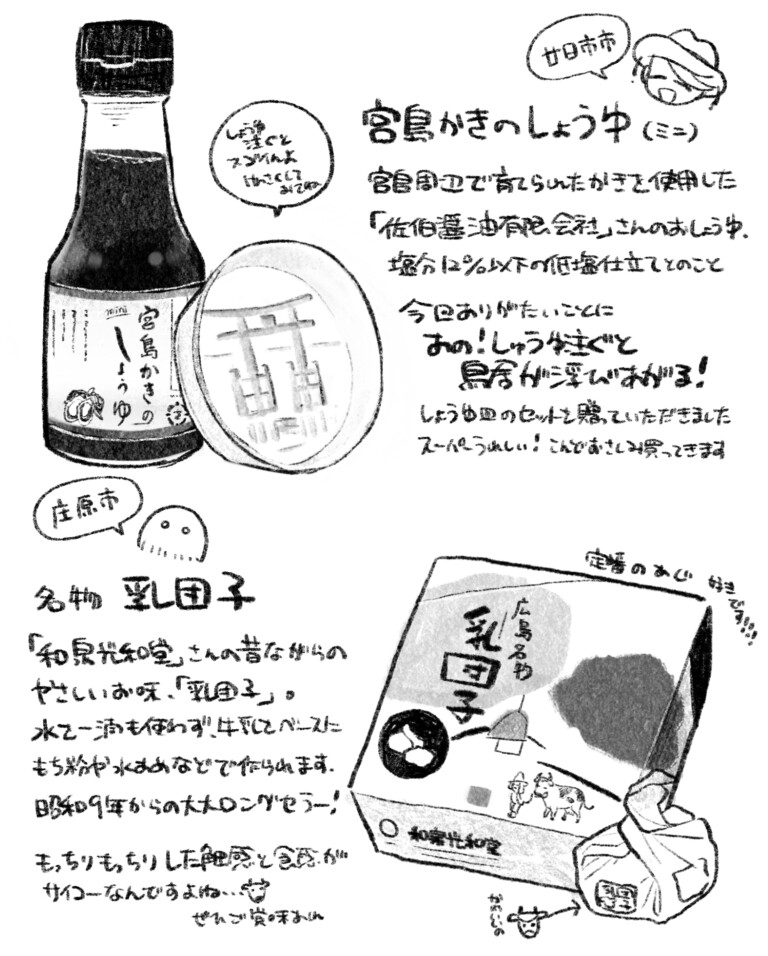 廿日市市
宮島かきのしょうゆ(ミニ)
しょうゆ
注ぐと
みてね
宮島周辺で育てられたかきを使用した
「佐伯醤油有限会社」さんのおしょうゆ、
塩分12%以下の低塩仕立てとのこと
今回ありがたいことに
あの!しょうゆ注ぐと
鳥居が浮びあがる!
しょうゆ皿のセットを贈っていただきました
スーパーうれしい!こんどおさしみ買ってきます
mini
宮島かきの
しょうゆ
庄原市
名物 乳団子
「和泉光和堂」さんの昔ながらの
やさしいお味、「乳団子」。
水を一滴も使わず、牛乳をベースに
もち粉や水あめなどで作られます。
昭和9年からの大大ロングセラー!
もっちりもっちりした触感と食感が
サイコーなんですよね…
ぜひご賞味あれ
定番のあじ 好きです!!!
広島名物
乳団子
和泉光和堂
乳団子
かわいいの